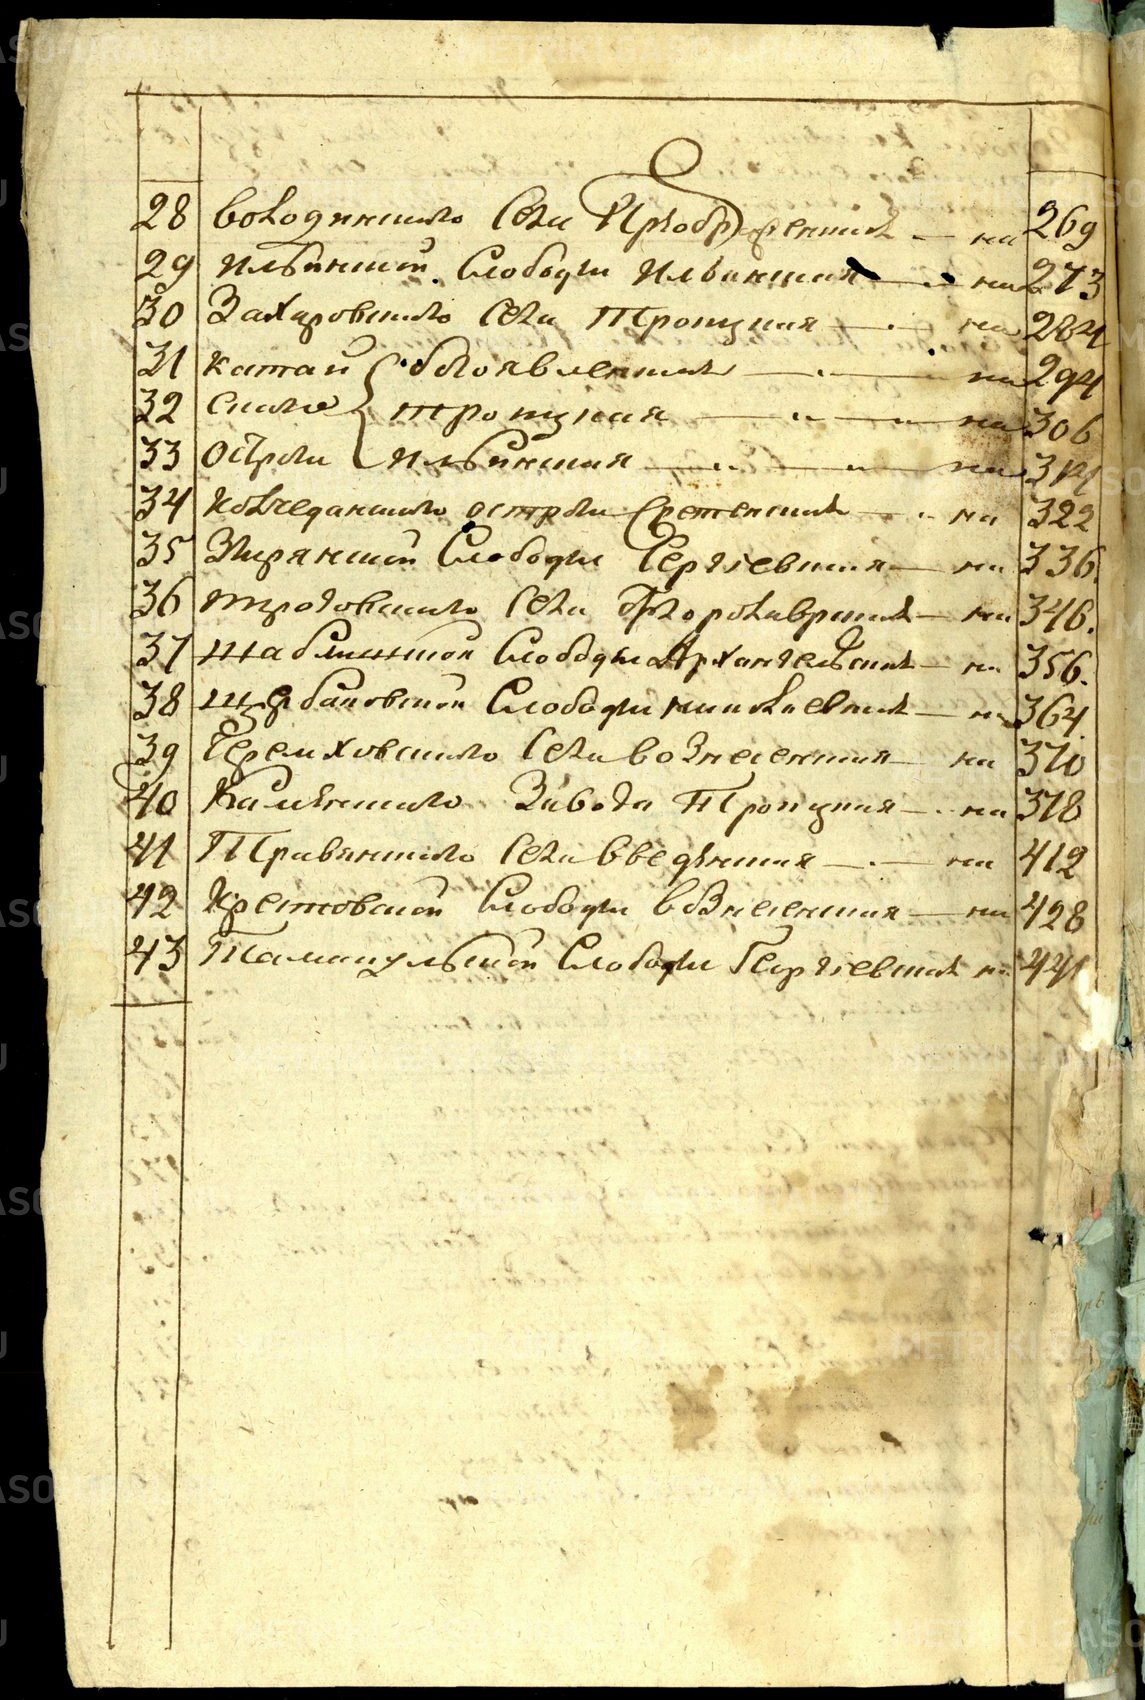 28 володинского села Преображенская — на 269
29 Ильинской слободы Ильинская — на 273
30 Захаровского села Троицкая — на 284
31 катай богоявленская — на 294
32 скаго троицкая — на 306
33 острога Ильинская — на 314
34 колчеданского острога Сретенская — на 322
35 Зырянской слободы Сергиевская — на 336.
36 села — на 346.
37 слободы Архангельская — на 356.
38 слободы николаевская — на 364
39 Черемховского села вознесенская — на 370
40 Каменского завода Троицкая — на 378
41 Травянского села введенская — на 412
42 Крестовской слободы вознесенская — на 428
43 Тамакульской слободы Георгиевская на 441